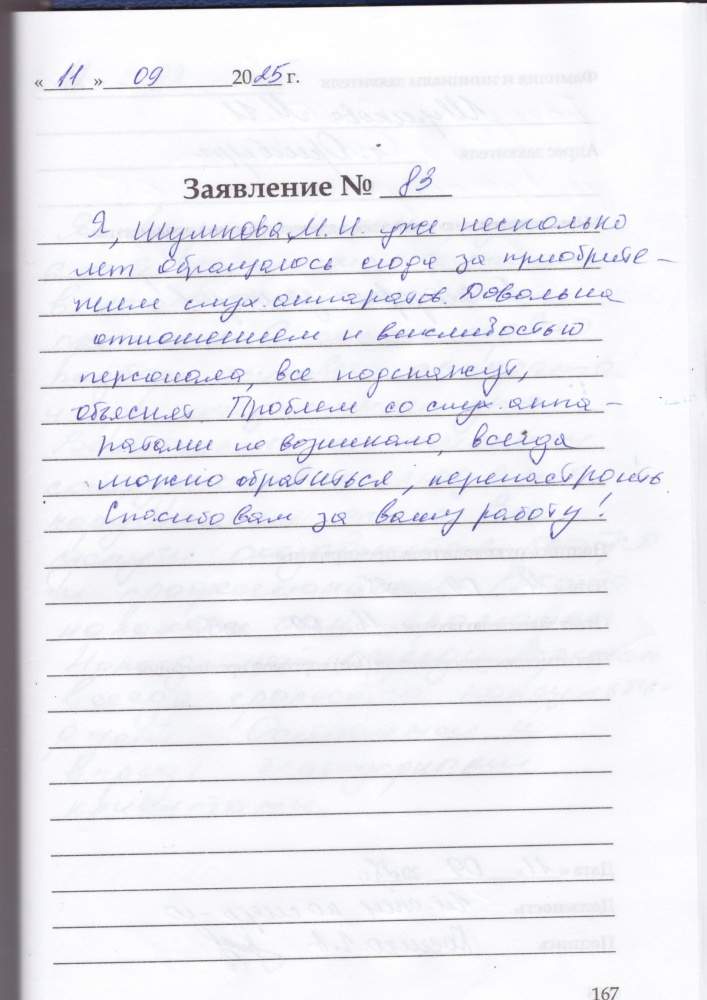 « 11 » 09 2025 г.
Заявление № 83
Я, Шумкова М.И. уже несколько
лет обращаюсь сюда за приобрите-
нием слух. аппаратов. Довольна
отношением и вежливостью
персонала, все подскажут,
объяснят. Проблем со слух. аппа-
ратами не возникало, всегда
можно обратиться, перенастроить
Спасибо вам за вашу работу!
167